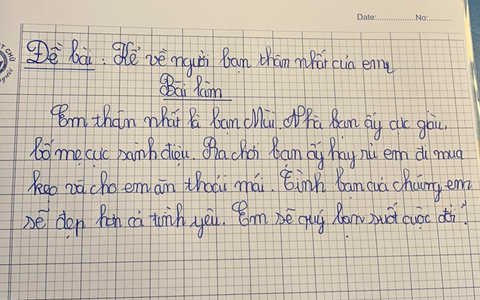 Date: No:
Đề bài: Kể về người bạn thân nhất của em
Bài làm
Em thân nhất là bạn Mùi. Nhà bạn ấy cực giàu,
bố mẹ cực sành điệu. Ra chơi bạn ấy hay rủ em đi mua
kẹo và cho em ăn thoải mái. Tình bạn của chúng em
sẽ đẹp hơn cả tình yêu. Em sẽ quý bạn suốt cuộc đời!